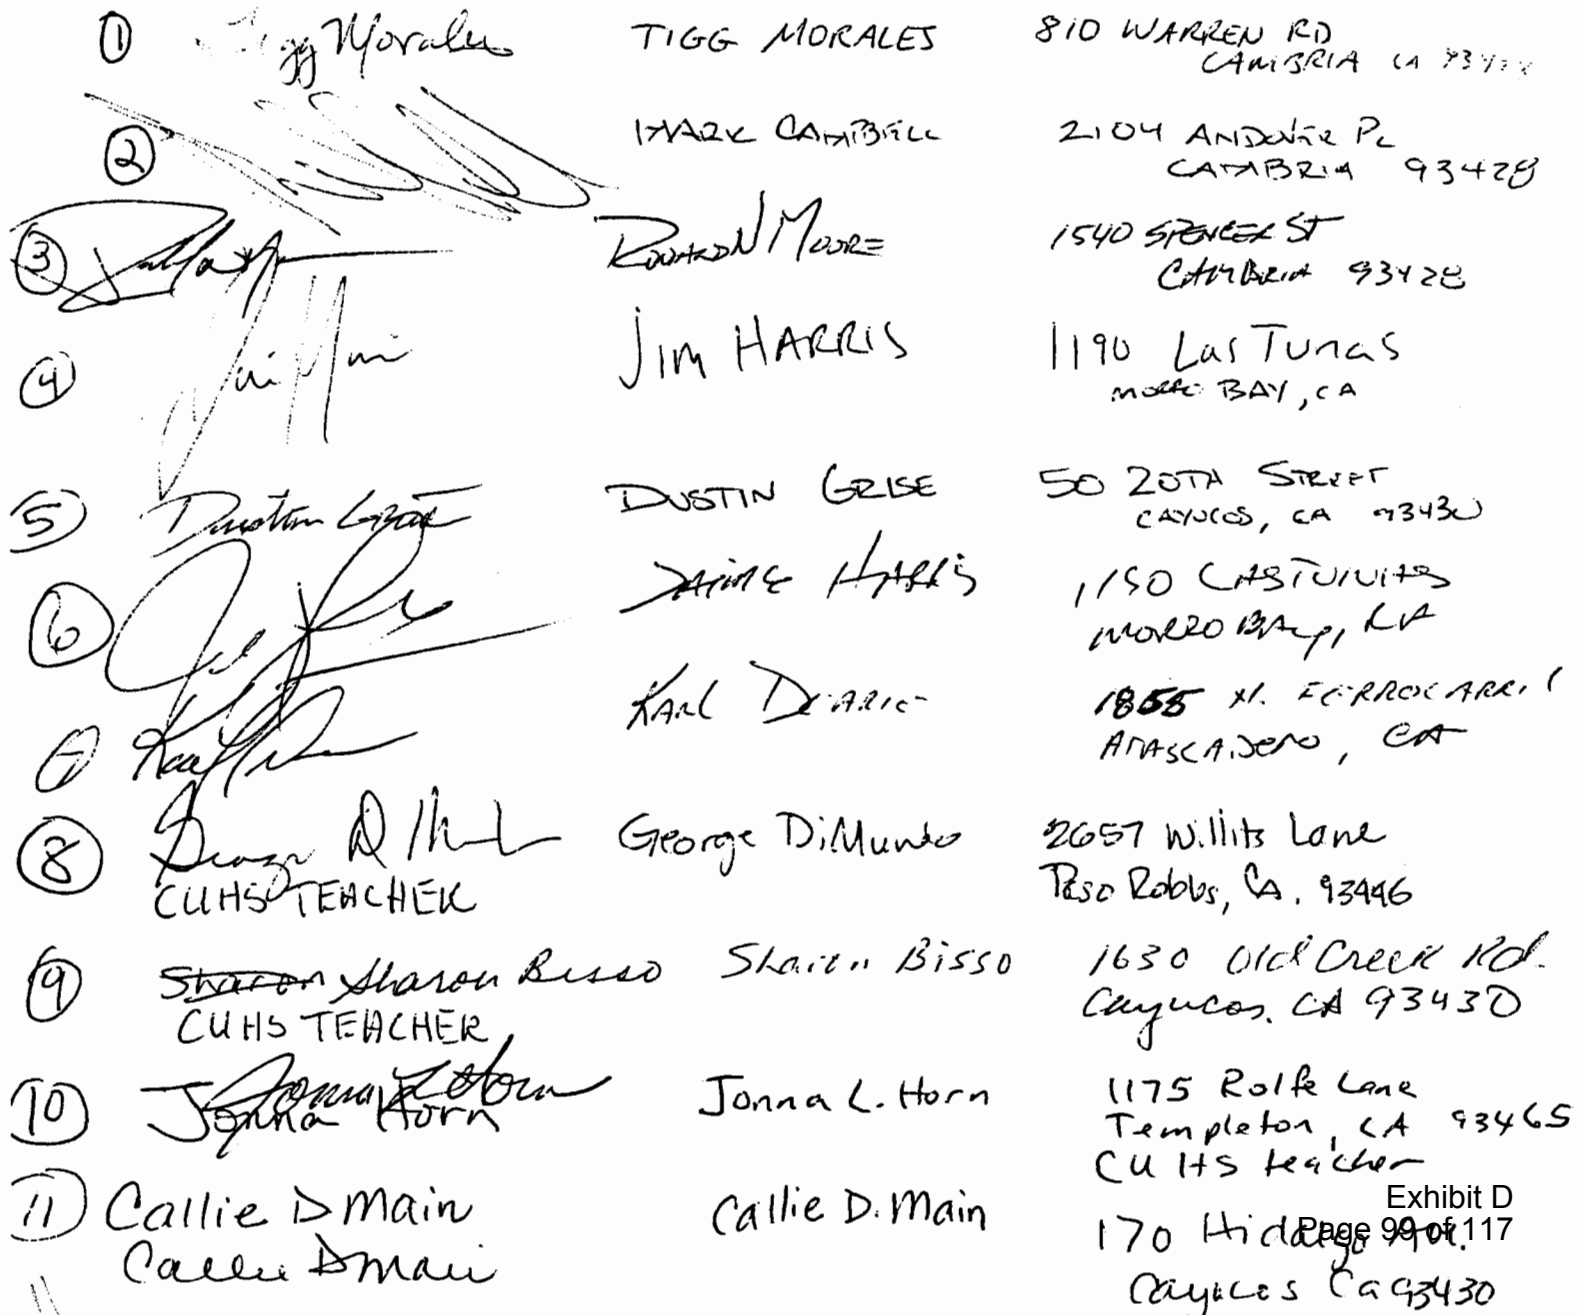 ① Tigg Morales TIGG MORALES 810 WARREN RD
CAMBRIA CA 93428
② MARK CAMPBELL 2104 ANDOVER PL
CAMBRIA 93428
③ MOORE 1540 SPENCER ST
CAMBRIA 93428
④ JIM HARRIS 1190 Las Tunas
MORRO BAY, CA
⑤ Dustin Grise DUSTIN GRISE 50 20TH STREET
CAYUCOS, CA 93430
⑥ JAIME HARRIS 1190 LAS TUNAS
MORRO BAY, CA
⑦ KARL 1855 N. FERROCARRIL
ATASCADERO, CA
⑧ George DiMundo 2657 Willits Lane
CUHS TEACHER Paso Robles, CA. 93446
⑨ Sharon Sharon Bisso Sharon Bisso 1630 Old Creek Rd.
CUHS TEACHER Cayucos, CA 93430
⑩ Jonna L Horn Jonna L. Horn 1175 Rolfe Lane
Jonna Horn Templeton, CA 93465
CUHS teacher
⑪ Callie D Main Callie D. Main 170 Hidalgo Av.
Callie D Main Cayucos Ca 93430
Exhibit D
Page 99 of 117